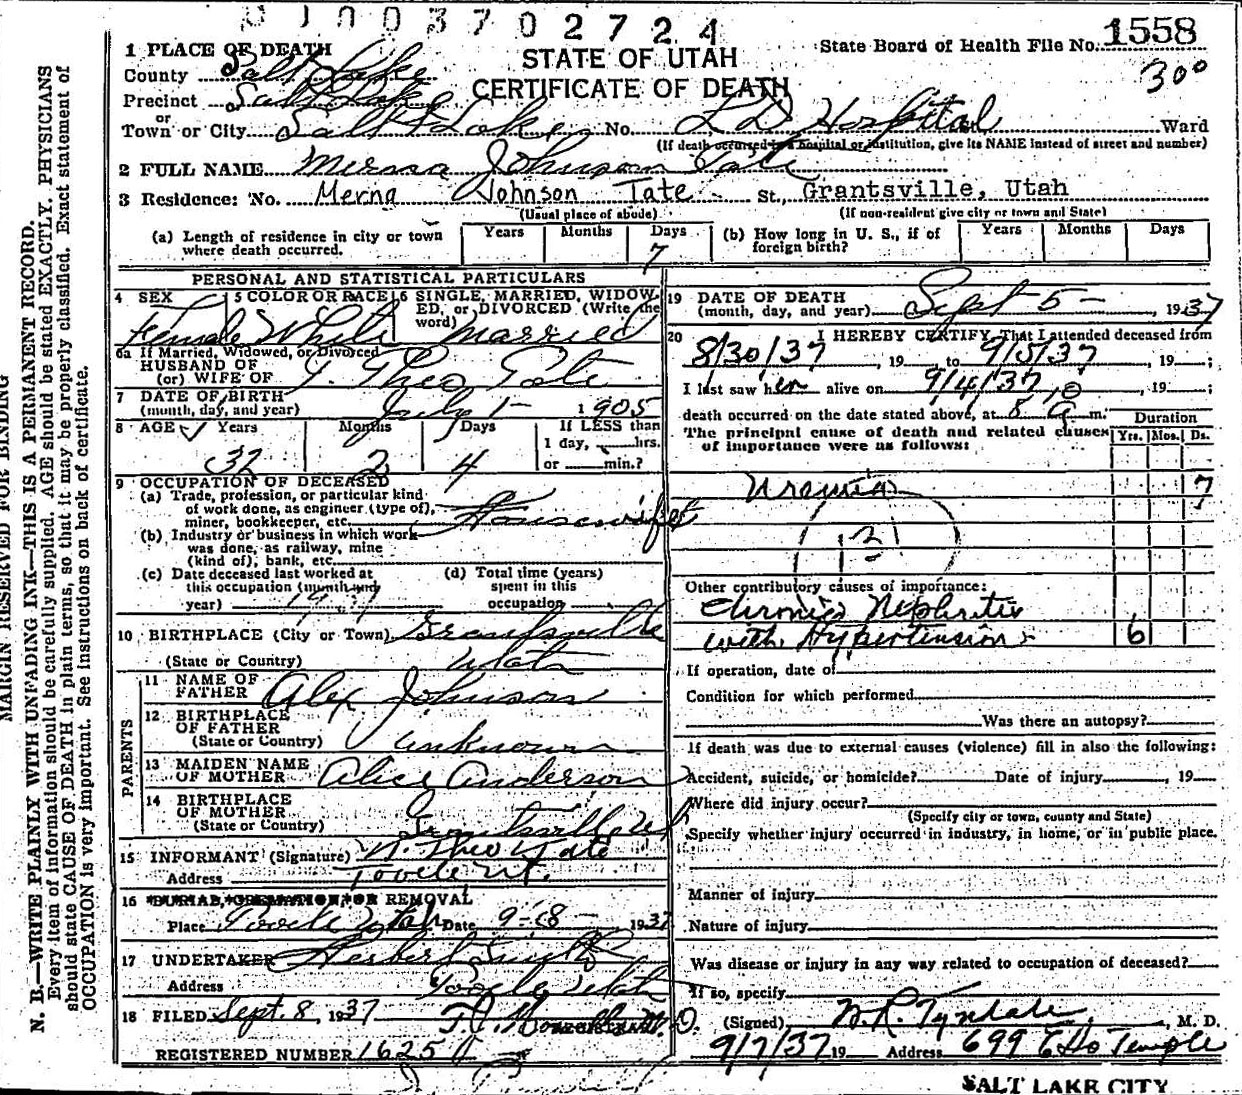 1003702724
1558
STATE OF UTAH
CERTIFICATE OF DEATH
State Board of Health File No. 1558
300
1 PLACE OF DEATH
County Salt Lake
Precinct Salt Lake
or
Town or City Salt Lake No. L D Hospital Ward
(If death occurred in a hospital or institution, give its NAME instead of street and number)
2 FULL NAME Merna Johnson Tate
3 Residence: No. Merna Johnson Tate St., Grantsville, Utah
(Usual place of abode) (If non-resident give city or town and State)
(a) Length of residence in city or town where death occurred. Years Months Days 7
(b) How long in U. S., if of foreign birth? Years Months Days
PERSONAL AND STATISTICAL PARTICULARS
4 SEX Female
5 COLOR OR RACE White
6 SINGLE, MARRIED, WIDOWED, or DIVORCED (Write the word) married
6a If Married, Widowed, or Divorced
HUSBAND OF
(or) WIFE OF Theo Tate
7 DATE OF BIRTH
(month, day, and year) July 1 - 1905
8 AGE Years Months Days If LESS than
1 day, hrs.
or min.?
32 2 4
9 OCCUPATION OF DECEASED
(a) Trade, profession, or particular kind
of work done, as engineer (type of),
miner, bookkeeper, etc. Housewife
(b) Industry or business in which work
was done, as railway, mine
(kind of), bank, etc.
(c) Date deceased last worked at
this occupation (month and
year)
(d) Total time (years)
spent in this
occupation
10 BIRTHPLACE (City or Town) Grantsville
(State or Country) Utah
PARENTS
11 NAME OF
FATHER Alex Johnson
12 BIRTHPLACE
OF FATHER
(State or Country) unknown
13 MAIDEN NAME
OF MOTHER Alice Anderson
14 BIRTHPLACE
OF MOTHER
(State or Country) Grantsville Ut
15 INFORMANT (Signature) Theo Tate
Address Tooele Ut.
16 BURIAL, CREMATION, OR REMOVAL
Place Tooele Utah Date 9-8- 1937
17 UNDERTAKER Herbert
Address Tooele Utah
18 FILED Sept. 8, 1937
REGISTRAR
REGISTERED NUMBER 1625
19 DATE OF DEATH
(month, day, and year) Sept 5 - , 1937
20 I HEREBY CERTIFY, That I attended deceased from
8/30/37, 19 to 9/5/37, 19 ;
I last saw her alive on 9/4/37, 19 ;
death occurred on the date stated above, at 8 a m.
The principal cause of death and related causes
of importance were as follows:
Duration
Yrs. Mos. Ds.
Uremia 7
Other contributory causes of importance:
Chronic Nephritis
with Hypertension 6
If operation, date of
Condition for which performed
Was there an autopsy?
If death was due to external causes (violence) fill in also the following:
Accident, suicide, or homicide? Date of injury , 19
Where did injury occur?
(Specify city or town, county and State)
Specify whether injury occurred in industry, in home, or in public place.
Manner of injury
Nature of injury
Was disease or injury in any way related to occupation of deceased?
If so, specify
(Signed) W. R. Tyndale, M. D.
9/7/37 19 Address 699 E So Temple
SALT LAKE CITY
MARGIN RESERVED FOR BINDING
N. B.—WRITE PLAINLY WITH UNFADING INK—THIS IS A PERMANENT RECORD.
Every item of information should be carefully supplied. AGE should be stated EXACTLY. PHYSICIANS
should state CAUSE OF DEATH in plain terms, so that it may be properly classified. Exact statement of
OCCUPATION is very important. See instructions on back of certificate.